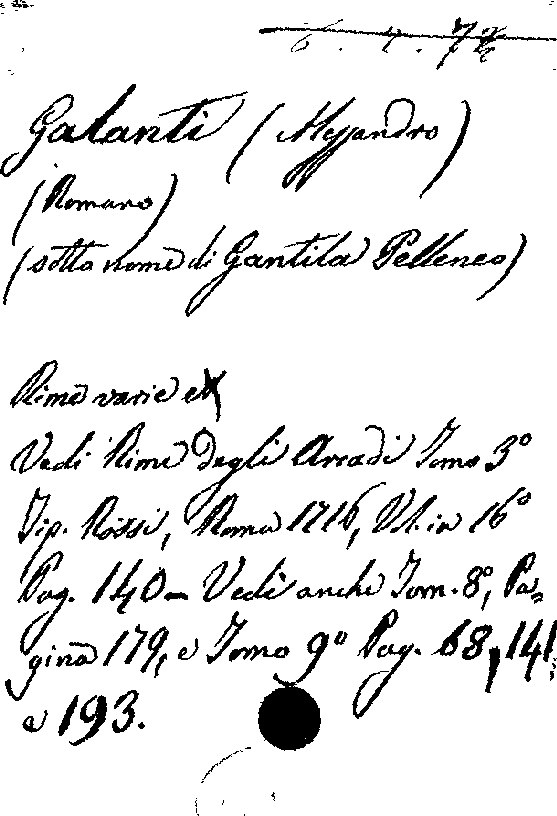 6. 4. 72
Galanti (Alessandro)
(Romano)
(sotto nome di Gantila Pelleneo)
Rime varie
Vedi Rime degli Arcadi Tomo 3º
Tip. Rossi, Roma 1716, Vol. in 16º
Pag. 140 – Vedi anche Tom. 8º, Pa=
gina 179, e Tomo 9º Pag. 68, 141
e 193.